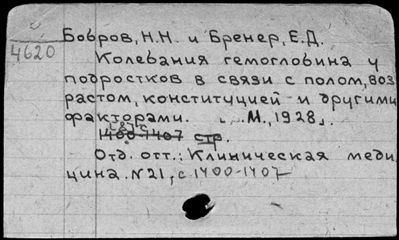 Бобров, Н.Н. и Бренер, Е.Д.
4620
Колебания гемоглобина у
подростков в связи с полом, воз
растом, конституцией и другими
факторами. М., 1928.
1400-1407 стр.
Отд. отт.: Клиническая меди
цина. N21, с 1400-1407